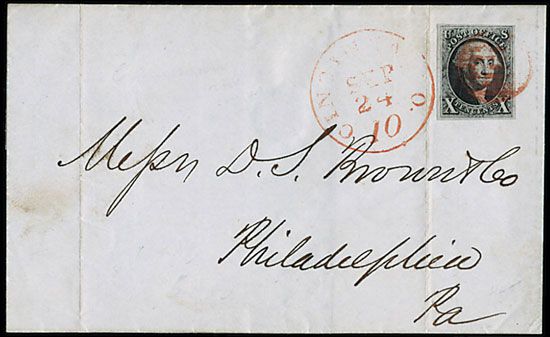 POST OFFICE
U S
X TEN CENTS X
CINCINNATI O.
SEP
24
10
Messrs D. S. Brown & Co
Philadelphia
Pa